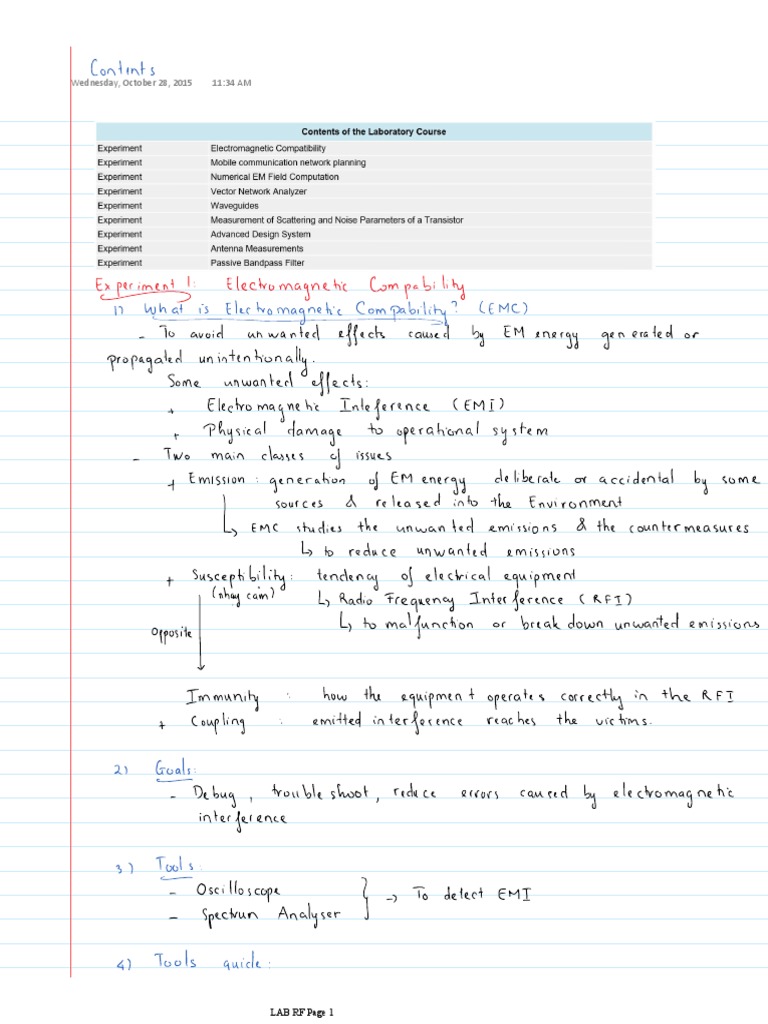 Contents
Wednesday, October 28, 2015 11:34 AM
Contents of the Laboratory Course
Experiment Electromagnetic Compatibility
Experiment Mobile communication network planning
Experiment Numerical EM Field Computation
Experiment Vector Network Analyzer
Experiment Waveguides
Experiment Measurement of Scattering and Noise Parameters of a Transistor
Experiment Advanced Design System
Experiment Antenna Measurements
Experiment Passive Bandpass Filter
Experiment 1: Electromagnetic Compability
1) What is Electromagnetic Compability? (EMC)
- To avoid unwanted effects caused by EM energy generated or
propagated unintentionally.
Some unwanted effects:
+ Electromagnetic Inteference (EMI)
+ Physical damage to operational system
- Two main classes of issues
+ Emission: generation of EM energy deliberate or accidental by some
sources & released into the Environment
↳ EMC studies the unwanted emissions & the countermeasures
↳ to reduce unwanted emissions
+ Susceptibility: tendency of electrical equipment
(nhạy cảm) ↳ Radio Frequency Interference (RFI)
↳ to malfunction or break down unwanted emissions
Opposite
Immunity : how the equipment operates correctly in the RFI
+ Coupling : emitted interference reaches the victims.
2) Goals:
- Debug, troubleshoot, reduce errors caused by electromagnetic
interference
3) Tools:
- Oscilloscope
- Spectrum Analyser } -> To detect EMI
4) Tools guide:
LAB RF Page 1